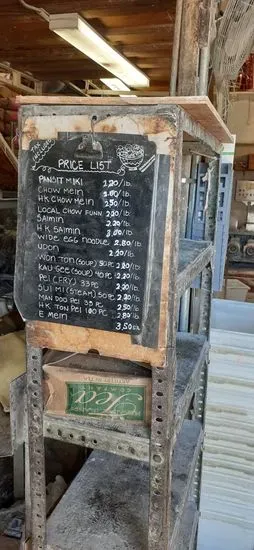 TAX
INCLUDED
PRICE LIST
PANSIT MIKI 2.20/lb.
CHOW MEIN 2.20/lb.
HK CHOW MEIN 2.50/lb.
LOCAL CHOW FUNN 2.20/lb.
SAIMIN 2.20/lb.
HK SAIMIN 2.80/lb.
WIDE EGG NOODLE 2.80/lb.
UDON 2.20/lb.
WON TON (SOUP) 50 PC 2.20/lb.
KAU GEE (SOUP) 40 PC 2.20/lb.
PEI (FRY) 33 PC 2.20/lb.
SUI MI (STEAM) 50 PC 2.20/lb.
MAN DOO PEI 35 PC 2.50/lb.
HK TON PEI 100 PC 2.80/lb.
E MEIN 3.50 ea
Tea